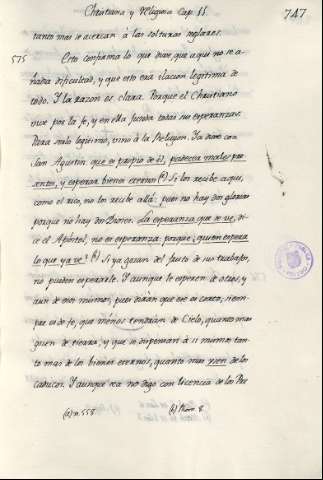 Christiana y Religiosa Cap. 11.
747
tanto mas se acercan à las solturas seglares.
575 Esto confirma lo que dixe, que aqui no se a-
hadia dificultad, y que esto era ilacion legitima de
todo. Y la razon es clara. Porque el Christiano
vive por la fe, y en ella funda todas sus esperanzas.
Para solo legitimo, vino à la Religion. Ya dixe con
San Agustin que es propio de èl, padecer males pre-
sentes, y esperar bienes eternos (a) Si los recibe aqui,
como el rico, no los recibe allà: pues no hay dos glorias
porque no hay dos Dioses. La esperanza que se ve, di-
ce el Apòstol, no es esperanza: porque ¿quien espera
lo que ya ve? (b) Si ya gozan del fruto de sus trabajos,
no pueden esperarle. Y aunque le esperen de otros, y
aun de esos mismos, pues diràn que eso es corto, siem-
pre es de fe, que mènos tendràn de Cielo, quanto mas
gozen de tierra; y que se disponen à sì mismos tan-
to mas de los bienes eternos, quanto mas vien de los
caducos. Y aunque no digo con licencia de los Pre-
(a) n. 558 (b) Rom. 8.